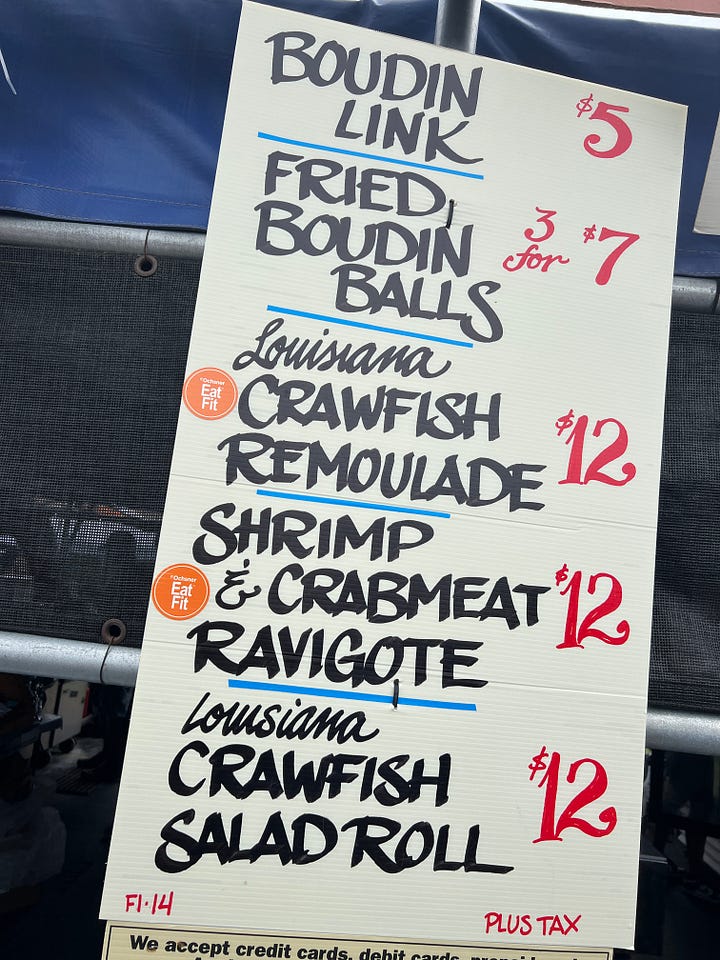 BOUDIN
LINK
$5
FRIED
BOUDIN
BALLS
3
for
$7
Louisiana
Ochsner
Eat
Fit
CRAWFISH
REMOULADE
$12
SHRIMP
Ochsner
Eat
Fit
& CRABMEAT
RAVIGOTE
$12
Louisiana
CRAWFISH
SALAD ROLL
$12
F1-14
PLUS TAX
We accept credit cards, debit cards,